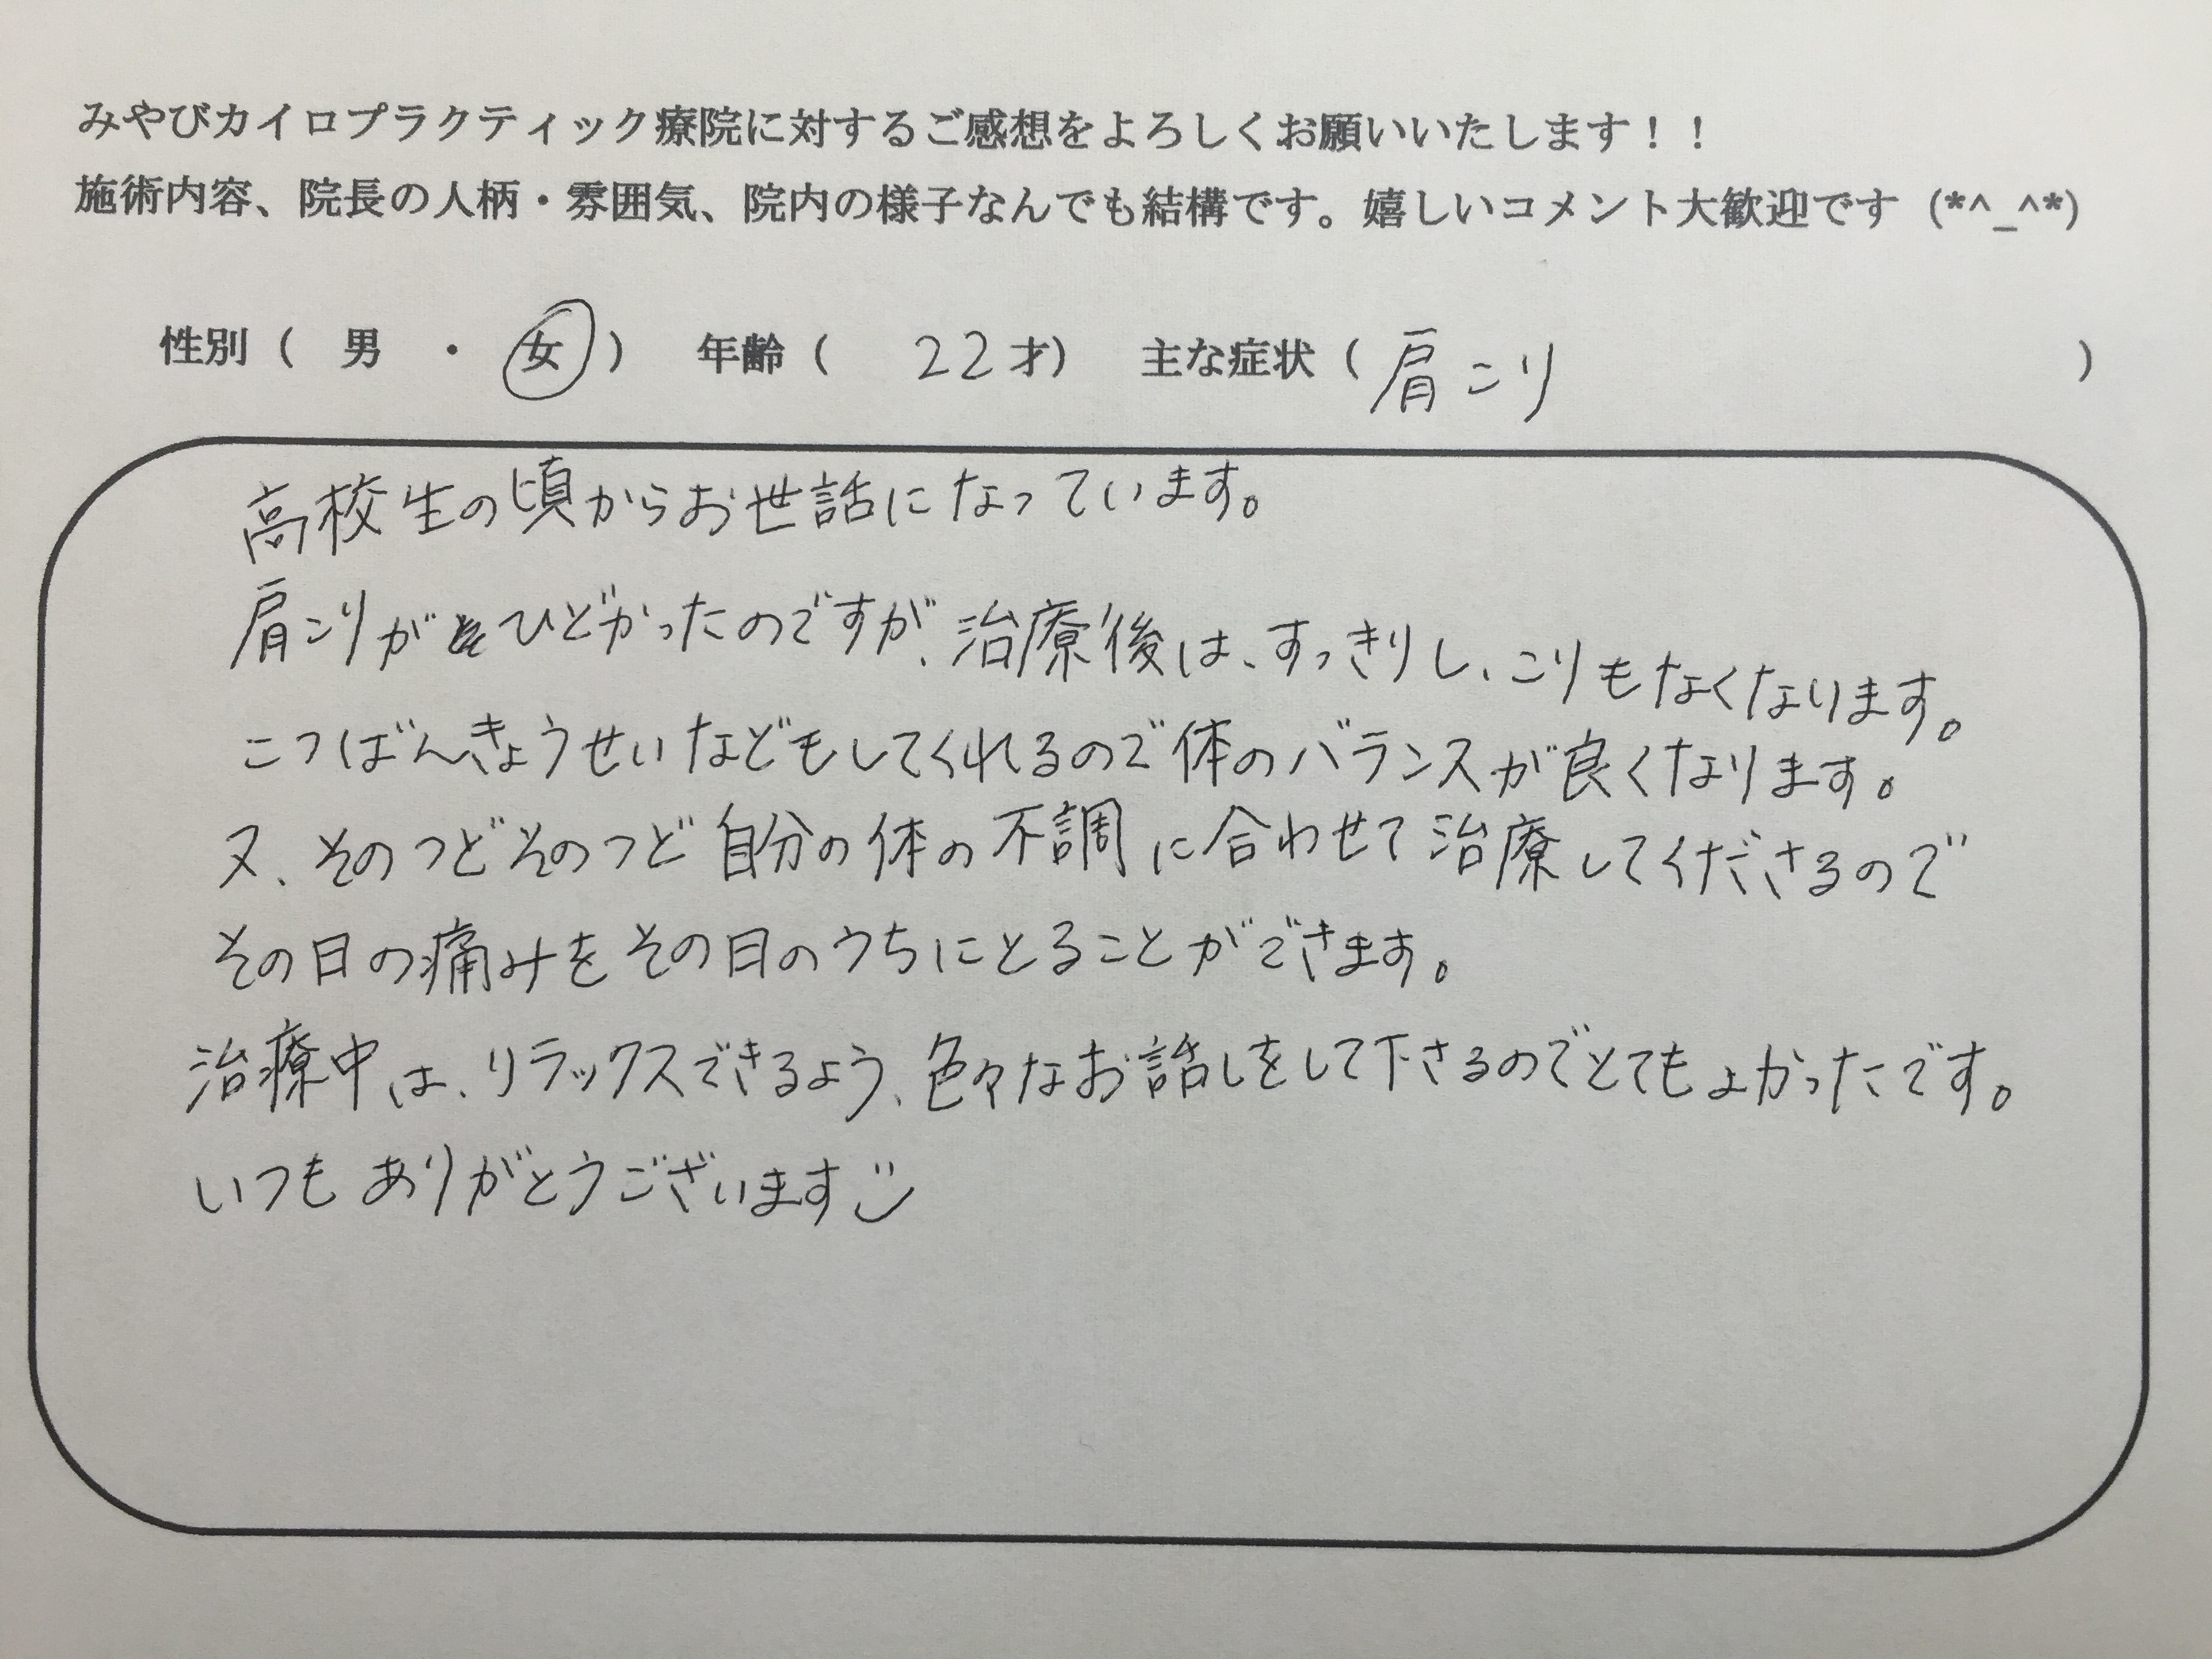 みやびカイロプラクティック療院に対するご感想をよろしくお願いいたします！！
施術内容、院長の人柄・雰囲気、院内の様子なんでも結構です。嬉しいコメント大歓迎です (*^_^*)
性別（ 男 ・ 女 ） 年齢（ 22才） 主な症状（ 肩こり ）
高校生の頃からお世話になっています。
肩こりがひどかったのですが、治療後は、すっきりし、こりもなくなります。
こつばんきょうせいなどもしてくれるので体のバランスが良くなります。
又、そのつどそのつど自分の体の不調に合わせて治療してくださるので
その日の痛みをその日のうちにとることができます。
治療中は、リラックスできるよう、色々なお話しをして下さるのでとてもよかったです。
いつもありがとうございます